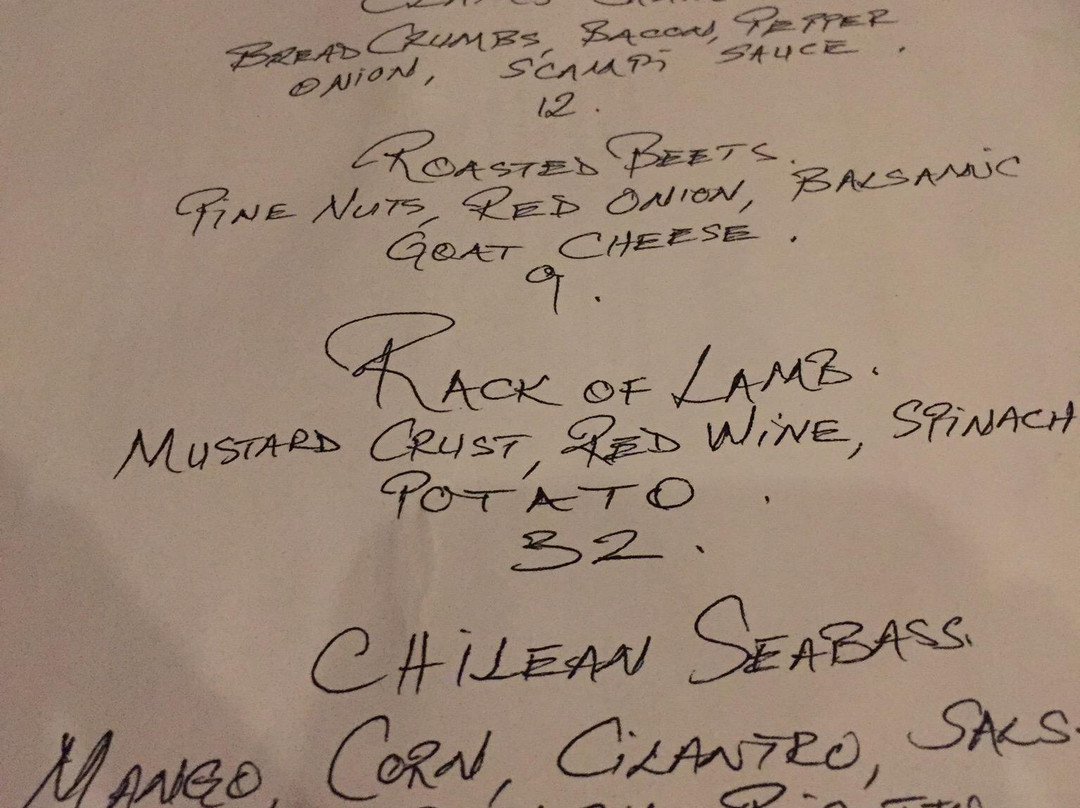 BREAD CRUMBS, BACON, PEPPER
ONION, SCAMPI SAUCE.
12.
ROASTED BEETS.
PINE NUTS, RED ONION, BALSAMIC
GOAT CHEESE.
9.
RACK OF LAMB.
MUSTARD CRUST, RED WINE, SPINACH
POTATO.
32.
CHILEAN SEABASS.
MANGO, CORN, CILANTRO, SALS